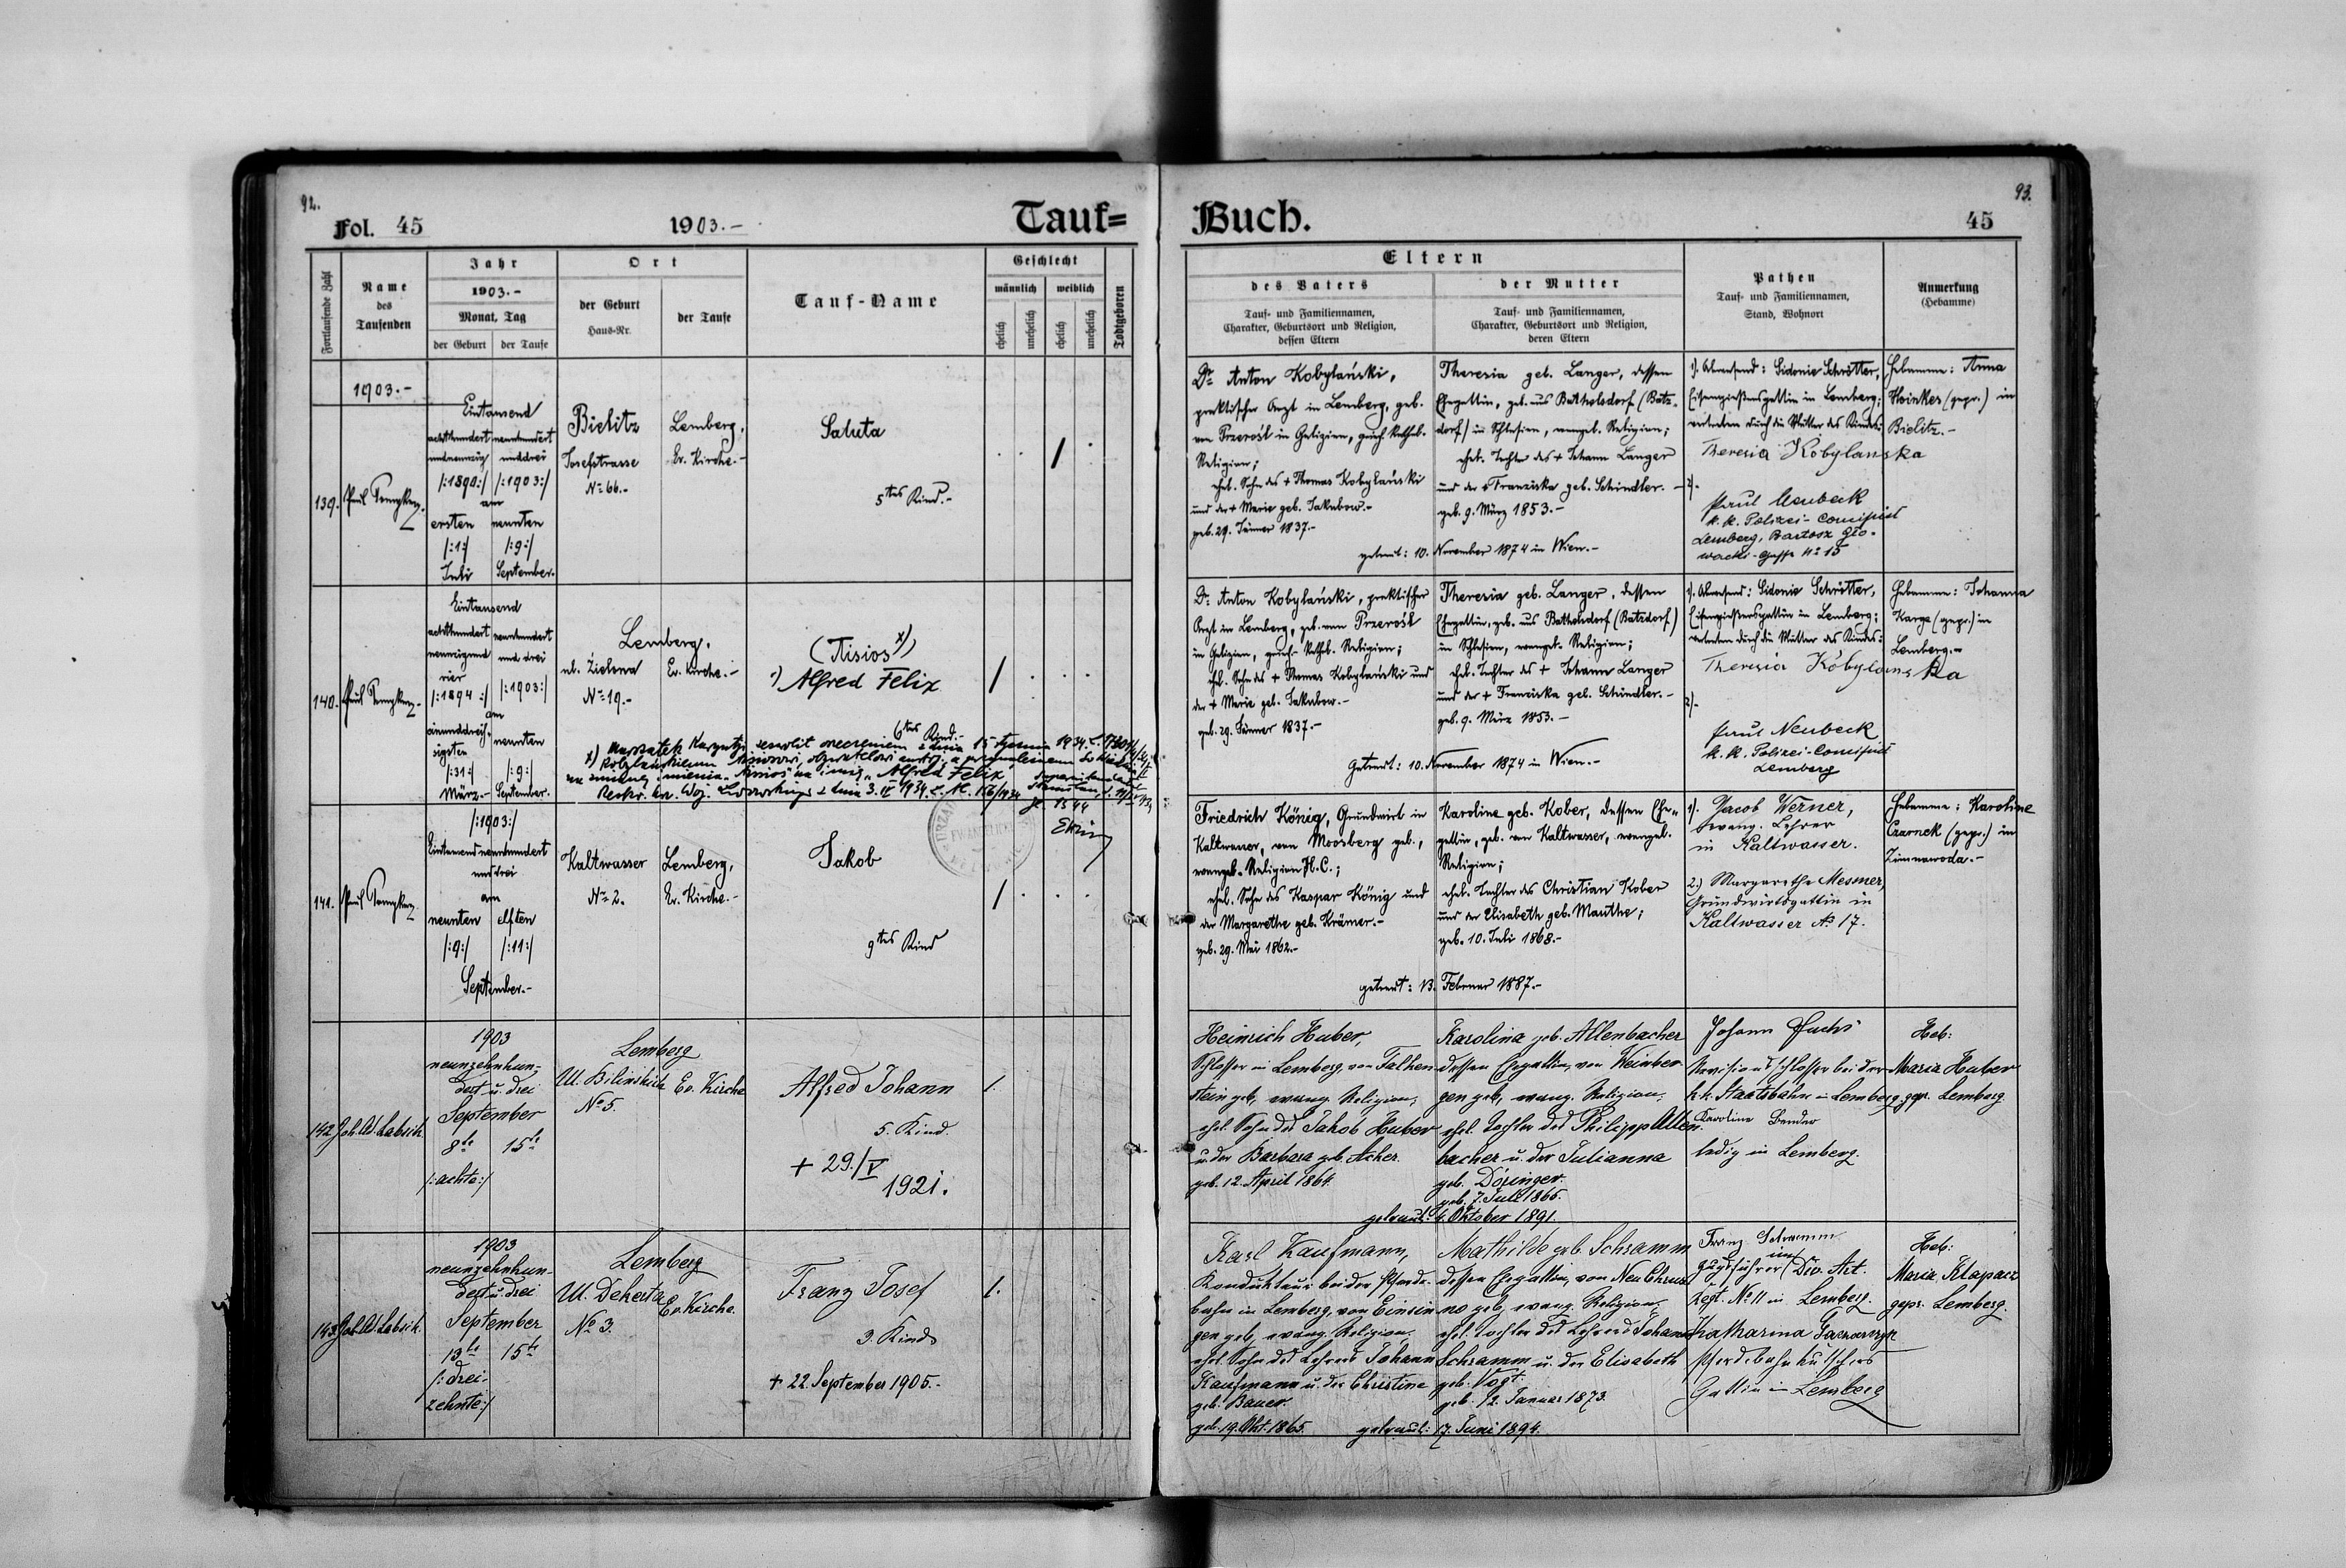 92.
Fol. 45
1903.–
Tauf=
Fortlaufende Zahl
Name
des
Taufenden
Jahr
1903.–
Monat, Tag
der Geburt
der Taufe
Ort
der Geburt
Haus-Nr.
der Taufe
Tauf-Name
Geschlecht
männlich
weiblich
ehelich
unehelich
ehelich
unehelich
Todtgeboren
1903.–
139.
Paul
Eintausend
achthundert neunhundert
undneunzig unddrei
/:1890:/ /:1903:/
am
ersten neunten
/:1:/ /:9:/
Juli September.
Bielitz
Josefstrasse
No 66.–
Lemberg,
Ev. Kirche.–
Saluta
5tes Kind.–
140.
Paul
Eintausend
achthundert neunhundert
neunzigund und drei
vier
/:1894:/ /:1903:/
am
einunddreis-
sigsten neunten
/:31:/ /:9:/
März.– September.
Lemberg,
ul. Zielona Ev. Kirche.–
No 19.–
(Aisios x))
1) Alfred Felix
6tes Kind.–
x) z dnia 15 stycznia 1934
na zmianę imienia "Aisios" na imię "Alfred Felix
Reskr. Woj. Lwowskiego z dnia 3. IV 1934
141.
Paul
/:1903:/
Eintausend neunhundert
unddrei
am
neunten elften
/:9:/ /:11:/
September.–
Kaltwasser
No 2.
Lemberg,
Ev. Kirche.–
Jakob
9tes Kind
142.
Joh. Ad. Labsik
1903
neunzehnhun-
dert u. drei
September
8te 15te
/:achte:/
Lemberg
Ul. Bilinskich Ev. Kirche
No 5.
Alfred Johann
5. Kind.
+ 29./V
1921.
143.
Joh. Ad. Labsik.
1903
neunzehnhun-
dert u. drei
September
13te 15te
/:drei-
zehnte:/
Lemberg
Ul. Dekerta Ev. Kirche.
No 3.
Franz Josef
3. Kind
+ 22. September 1905.–
93.
Buch.
45
Eltern
des Vaters
Tauf- und Familiennamen,
Charakter, Geburtsort und Religion,
dessen Eltern
der Mutter
Tauf- und Familiennamen,
Charakter, Geburtsort und Religion,
deren Eltern
Pathen
Tauf- und Familiennamen,
Stand, Wohnort
Anmerkung
(Hebamme)
Dr. Anton Kobylański,
praktischer Arzt in Lemberg, geb.
von Przerośl in Galizien,
Religion;
ehel. Sohn des + Thomas Kobylański
und der + Marie geb. Jakubow.–
geb. 29. Jänner 1837.–
Theresia geb. Langer, dessen
Ehegattin, geb. aus Batzdorf (Batz-
dorf) in Schlesien, evangel. Religion;
ehel. Tochter des + Johann Langer
und der + Franziska geb. Schindler.–
geb. 9. März 1853.–
getraut: 10. November 1874 in Wien.–
1). Abwesend: Sidonie Schrötter,
Eisengiessersgattin in Lemberg;
vertreten durch die Mutter des Kindes:
Theresia Kobylanska
2).
Paul Neubeck
k. k. Polizei-Concipist
Lemberg, Bartosz Glo-
wacki-Gasse No 15
Hebamme: Anna
Hoinkes (gepr.) in
Bielitz.–
Dr. Anton Kobylański, praktischer
Arzt in Lemberg, geb. von Przerośl
in Galizien, Religion;
ehel. Sohn des + Thomas Kobylański und
der + Marie geb. Jakubow.–
geb. 29. Jänner 1837.–
Theresia geb. Langer, dessen
Ehegattin, geb. aus (Batzdorf)
in Schlesien, evangel. Religion;
ehel. Tochter des + Johann Langer
und der + Franciska geb. Schindler.–
geb. 9. März 1853.–
Getraut: 10. November 1874 in Wien.–
1). Abwesend: Sidonie Schrötter,
Eisengiessersgattin in Lemberg;
vertreten durch die Mutter des Kindes:
Theresia Kobylanska
2).
Paul Neubeck
k. k. Polizei-Concipist
Lemberg
Hebamme: Johanna
Karge (gepr.) in
Lemberg.–
Friedrich König, Grundwirt in
Kaltwasser, von Moosberg geb.,
evangel. Religion H.C.;
ehel. Sohn des Kaspar König und
der Margarethe geb. Krämer.–
geb. 29. Mai 1862.–
Karoline geb. Kober, dessen Ehe-
gattin, geb. von Kaltwasser, evangel.
Religion;
ehel. Tochter des Christian Kober
und der Elisabeth geb. Manthe;
geb. 10. Juli 1868.–
getraut: 13. Februar 1887.–
1). Jacob Werner,
evang. Lehrer
in Kaltwasser.
2.) Margarethe Mesmer,
Grundwirtsgattin in
Kaltwasser No 17.
Hebamme: Karoline
Czarnek (gepr.) in
Zimnawoda.–
Heinrich Huber,
Schlosser in Lemberg, von Falken-
stein geb., evang. Religion,
ehel. Sohn des Jakob Huber
u. der Barbara geb. Acher.
geb. 12. April 1864.
Karolina geb. Allenbacher
dessen Ehegattin, von Weinber-
gen geb., evang. Religion,
ehel. Tochter des Philipp Allen-
bacher u. der Julianna
geb. Döringer.
geb. 7. Juli 1865.
getraut: 4. Oktober 1891.
Johann Fuchs
Revisionsschlosser bei der
k. k. Staatsbahn in Lemberg.
Karoline Bender
ledig in Lemberg.
Heb:
Maria Huber
gepr. Lemberg.
Karl Kaufmann,
Kondukteur bei der Pferde-
bahn in Lemberg, von Einsin-
gen geb., evang. Religion,
ehel. Sohn des Lehrers Johann
Kaufmann u. der Christine
geb. Bauer.
geb. 19. Okt. 1865.
Mathilde geb. Schramm
dessen Ehegattin, von Neu Chrus-
no geb., evang. Religion,
ehel. Tochter des Lehrers Johann
Schramm u. der Elisabeth
geb. Vogt.
geb. 12. Januar 1873.
getraut: 17. Juni 1894.
Franz Schramm
Zugsführer im Div. Art.
Regt. No 11 in Lemberg.
Katharina
Pferdebahnkutschers
Gattin in Lemberg
Heb:
Maria Klapacz
gepr. Lemberg.